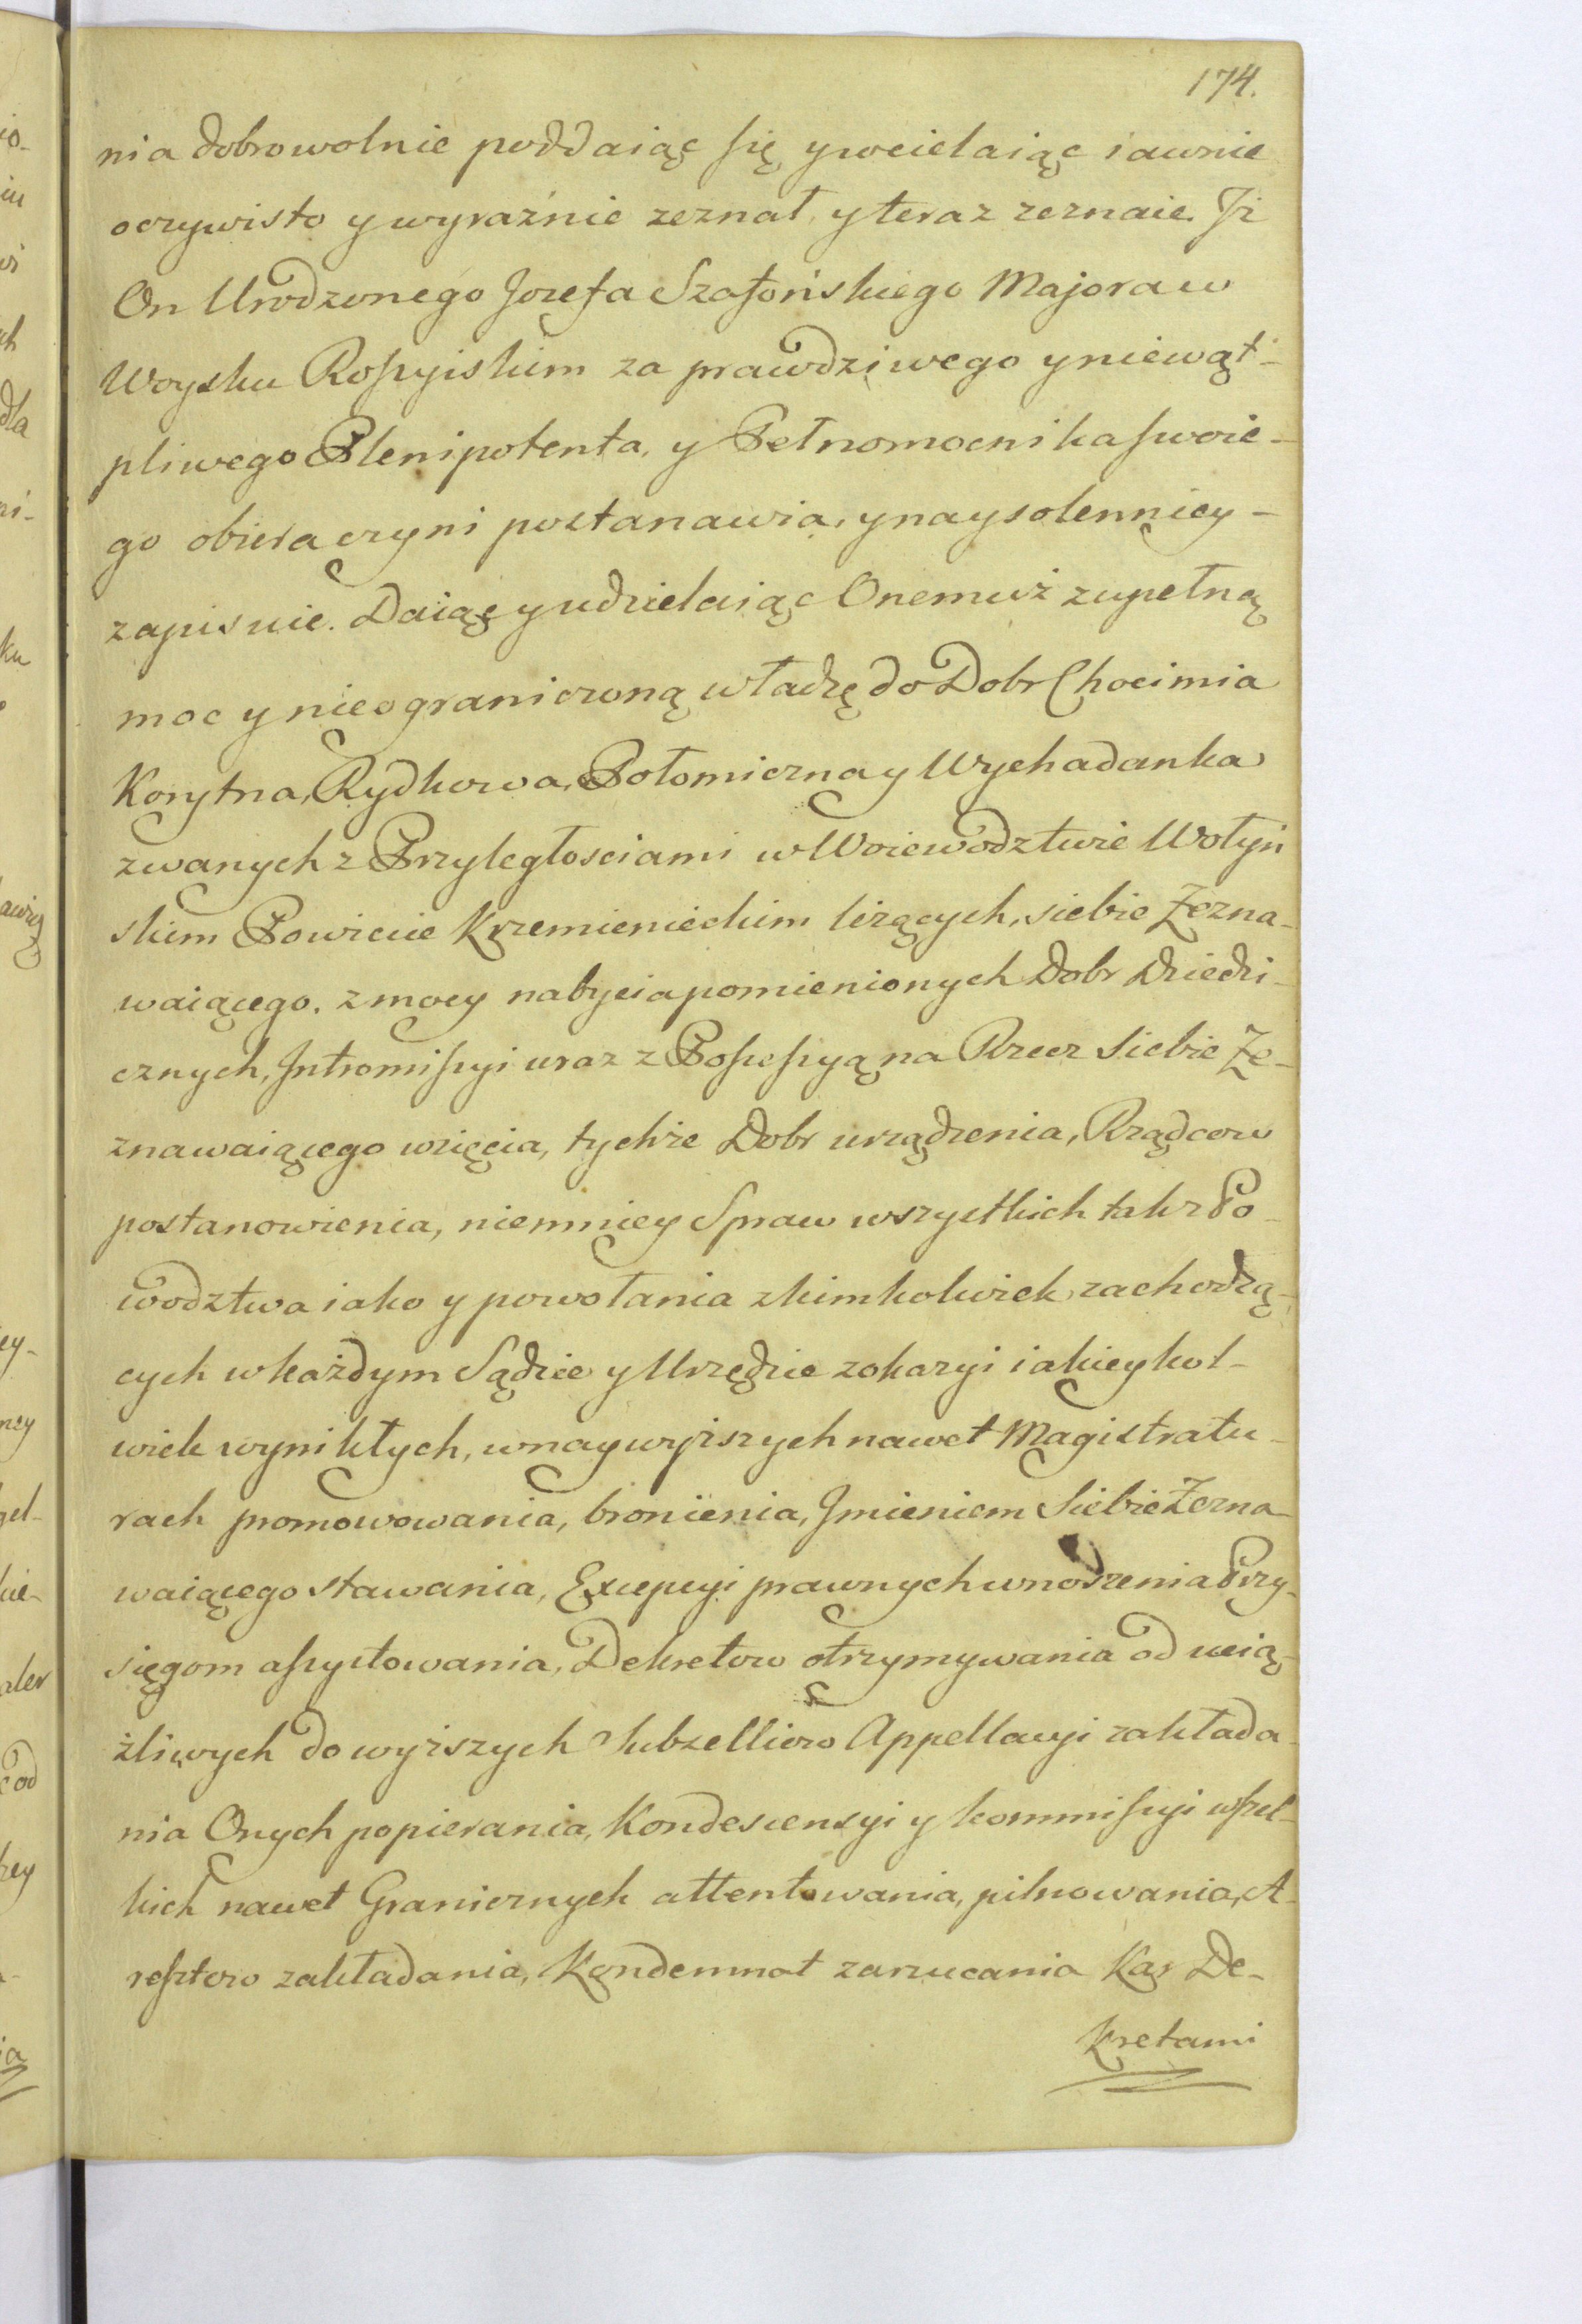 174.
nia dobrowolnie poddaiąc się y wcielaiąc iawnie
oczywisto y wyraźnie zeznał, y teraz zeznaie. Jż
On Urodzonego Jozefa Szafońskiego Majora w
Woysku Rossyiskim za prawdziwego y niewąt-
pliwego Plenipotenta, y Pełnomocnika swoie-
go obiera czyni postanawia, y naysolenniey-
zapisuie. Daiąc y udzielaiąc Onemuż zupełną
moc y nieograniczoną władzę do Dobr Chocimia
Korytna, Rydkowa, Połomiczna y Wychadanka
zwanych z Przyległosciami w Woiewodztwie Wołyń
skim Powiecie Krzemienieckim leżących, siebie Zezna-
waiącego, z mocy nabycia pomienionych Dobr Dziedzi-
cznych, Intromissyi wraz z Possessyą na Rzecz Siebie Ze-
znawaiącego wzięcia, tychże Dobr urządzenia, Rządcow
postanowienia, niemniey Spraw wszystkich takz Po-
wodztwa iako y powołania z kimkolwiek zachodzą-
cych w każdym Sądzie y Urzędzie z okazyi iakieykol-
wiek wynikłych, w naywyższych nawet Magistratu-
rach promowowania, bronienia, Jmieniem Siebie Zezna-
waiącego stawania, Excepcyi prawnych wnoszenia Przy-
sięgom assystowania, Dekretow otrzymywania od ucią-
żliwych do wyższych Subselliow Appellacyi zakłada-
nia Onych popierania, Kondescensyi y kommissyi wszel-
kich nawet Granicznych attentowania, pilnowania, A-
resztow zakładania, Kondemnat zarzucania Kar De-
kretami